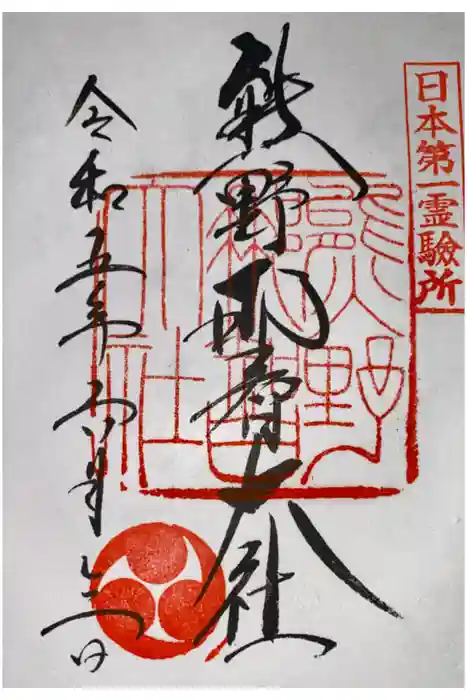 日本第一霊験所
熊野那智大社
令和五年 月 日
熊野
那智
大社